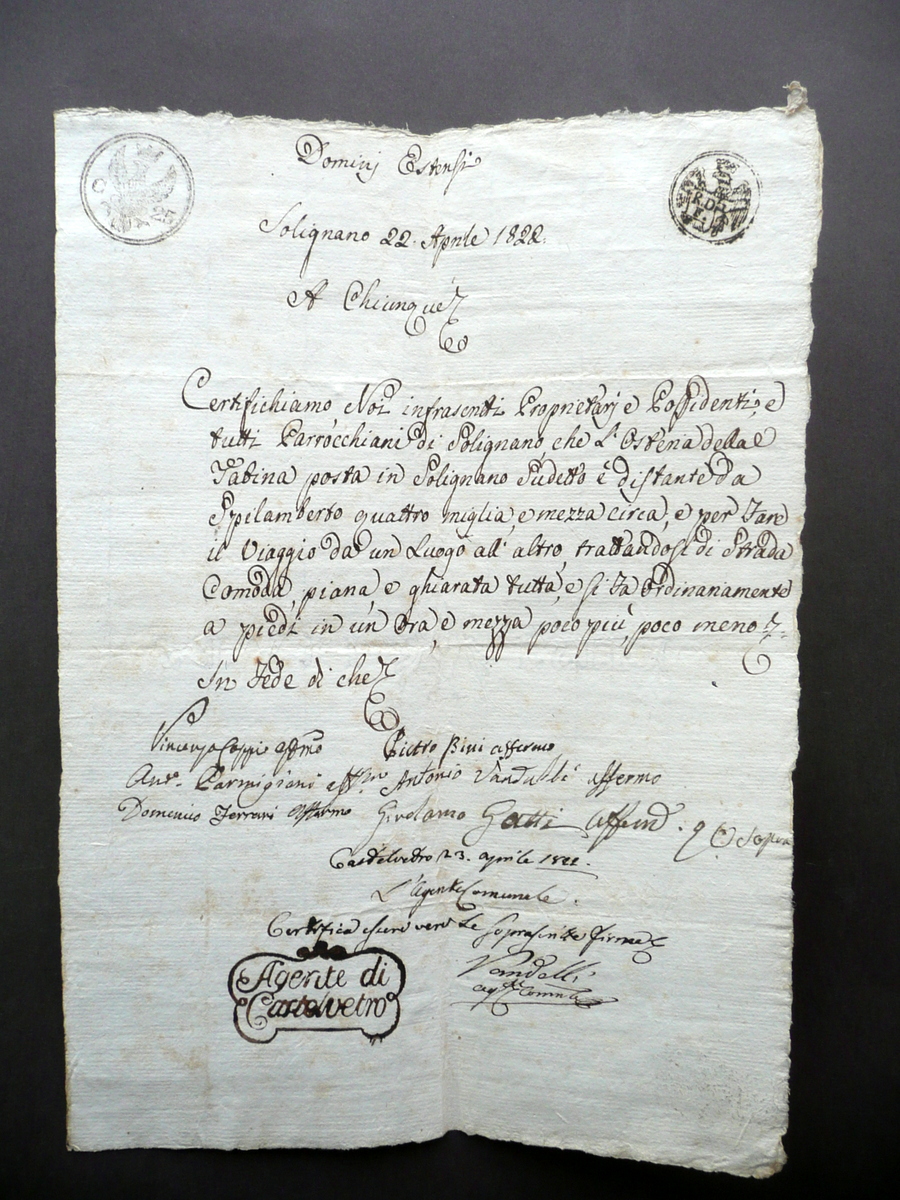 C. 25
R.D.
Dominj Estensi
Solignano 22. Aprile 1822.
A Chiunque
Certifichiamo Noi infrascritti Proprietarj e Possidenti, e
tutti Parrocchiani di Solignano, che L'Osteria della
Tabina posta in Solignano Sudetto è distante da
Spilamberto quattro miglia, e mezza circa, e per Fare
il Viaggio da un Luogo all'altro, trattandosi di Strada
Comoda, piana e ghiarata tutta, e si fa Ordinariamente
a piedi in un'Ora, e mezza poco più, poco meno
In Fede di che
Vincenzo Coppi affmo Pietro Bini affermo
Anto. Parmigiani Antonio Vandelli affermo
Domenico Ferrari affermo Girolamo Gatti Sopra
Castelvetro 23. aprile 1822.
L'Agente Comunale.
Certifica essere vere le soprascritte firme
Agente di
Castelvetro
Vandelli